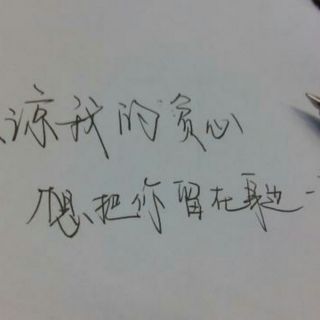 谅我的负心
想把你留在身边